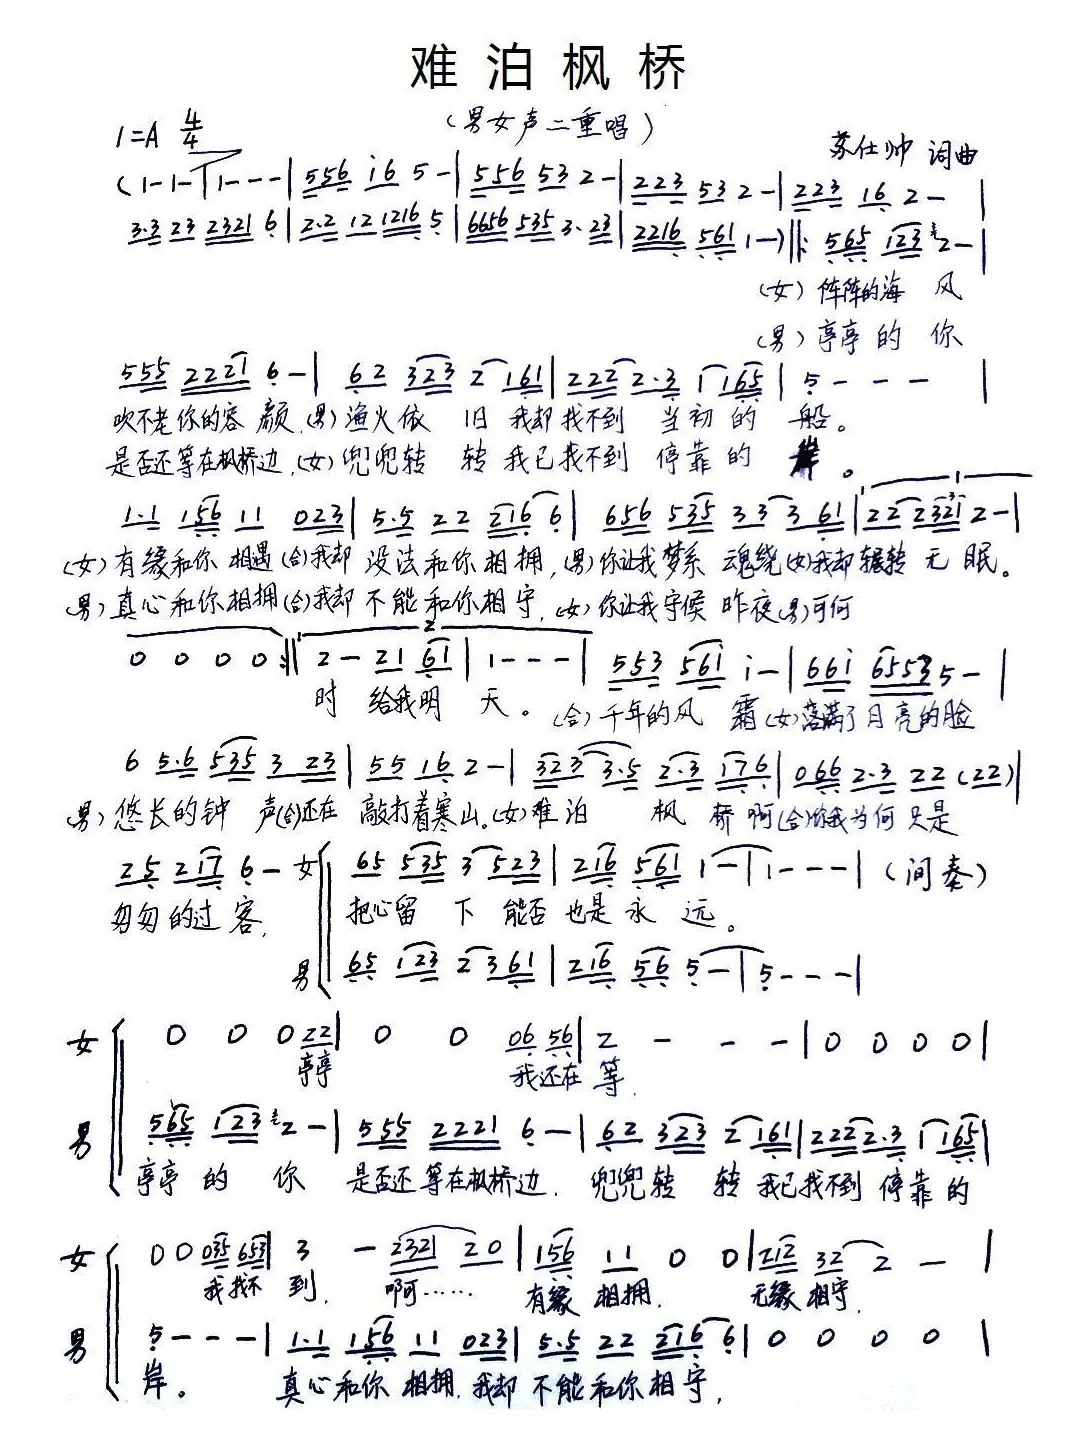 难泊枫桥
(男女声二重唱)
1=A 4/4
苏仕帅 词曲
(1-1-| 1--- | 556 i6 5- | 556 53 2- | 223 53 2- | 223 16 2- |
3·3 23 2321 6 | 2·2 12 1216 5 | 6656 535 3·23 | 2216 561 1-) ‖: 565 123 2- |
(女) 阵阵的海 风
(男) 亭亭的 你
555 2221 6- | 62 323 2 161 | 222 2·3 1 165 | 5--- |
吹不老你的容 颜,(男)渔火依 旧 我却找不到 当初的 船。
是否还等在枫桥边,(女)兜兜转 转 我已找不到 停靠的 岸。
1·1 156 11 023 | 5·5 22 216 6 | 656 535 33 3 61 | 22 2321 2- |
(女)有缘和你 相遇(合)我却 没法和你相拥,(男)你让我梦系 魂绕(女)我却辗转 无眠。
(男)真心和你相拥(合)我却 不能和你相守,(女)你让我守候 昨夜(男)可何
0 0 0 0 :‖ 2- 21 61 | 1--- | 553 561 i- | 66i 6553 5- |
时 给我明 天。 (合)千年的风 霜(女)落满了月亮的脸
6 5·6 535 3 23 | 55 16 2- | 323 3·5 2·3 176 | 066 2·3 22 (22) |
(男)悠长的钟 声(合)还在 敲打着寒山。(女)难泊 枫 桥啊(合)你我为何只是
25 217 6- 女 65 535 3 523 | 216 561 1- | 1--- | (间奏)
匆匆的过客, 把心留 下 能否 也是永 远。
男 65 123 2 361 | 216 56 5- | 5--- |
女 0 0 0 22 | 0 0 06 56 | 2 - - - | 0 0 0 0 |
亭亭 我还在 等,
男 565 123 2- | 555 2221 6- | 62 323 2 161 | 222 2·3 1 165 |
亭亭的 你 是否还等在枫桥边, 兜兜转 转 我已找不到 停靠的
女 0 0 035 653 | 3 - 2321 20 | 156 11 0 0 | 212 32 2 - |
我找不 到, 啊…… 有缘 相拥, 无缘相守,
男 5--- | 1·1 156 11 023 | 5·5 22 216 6 | 0 0 0 0 |
岸。 真心和你 相拥,我却 不能和你相守,